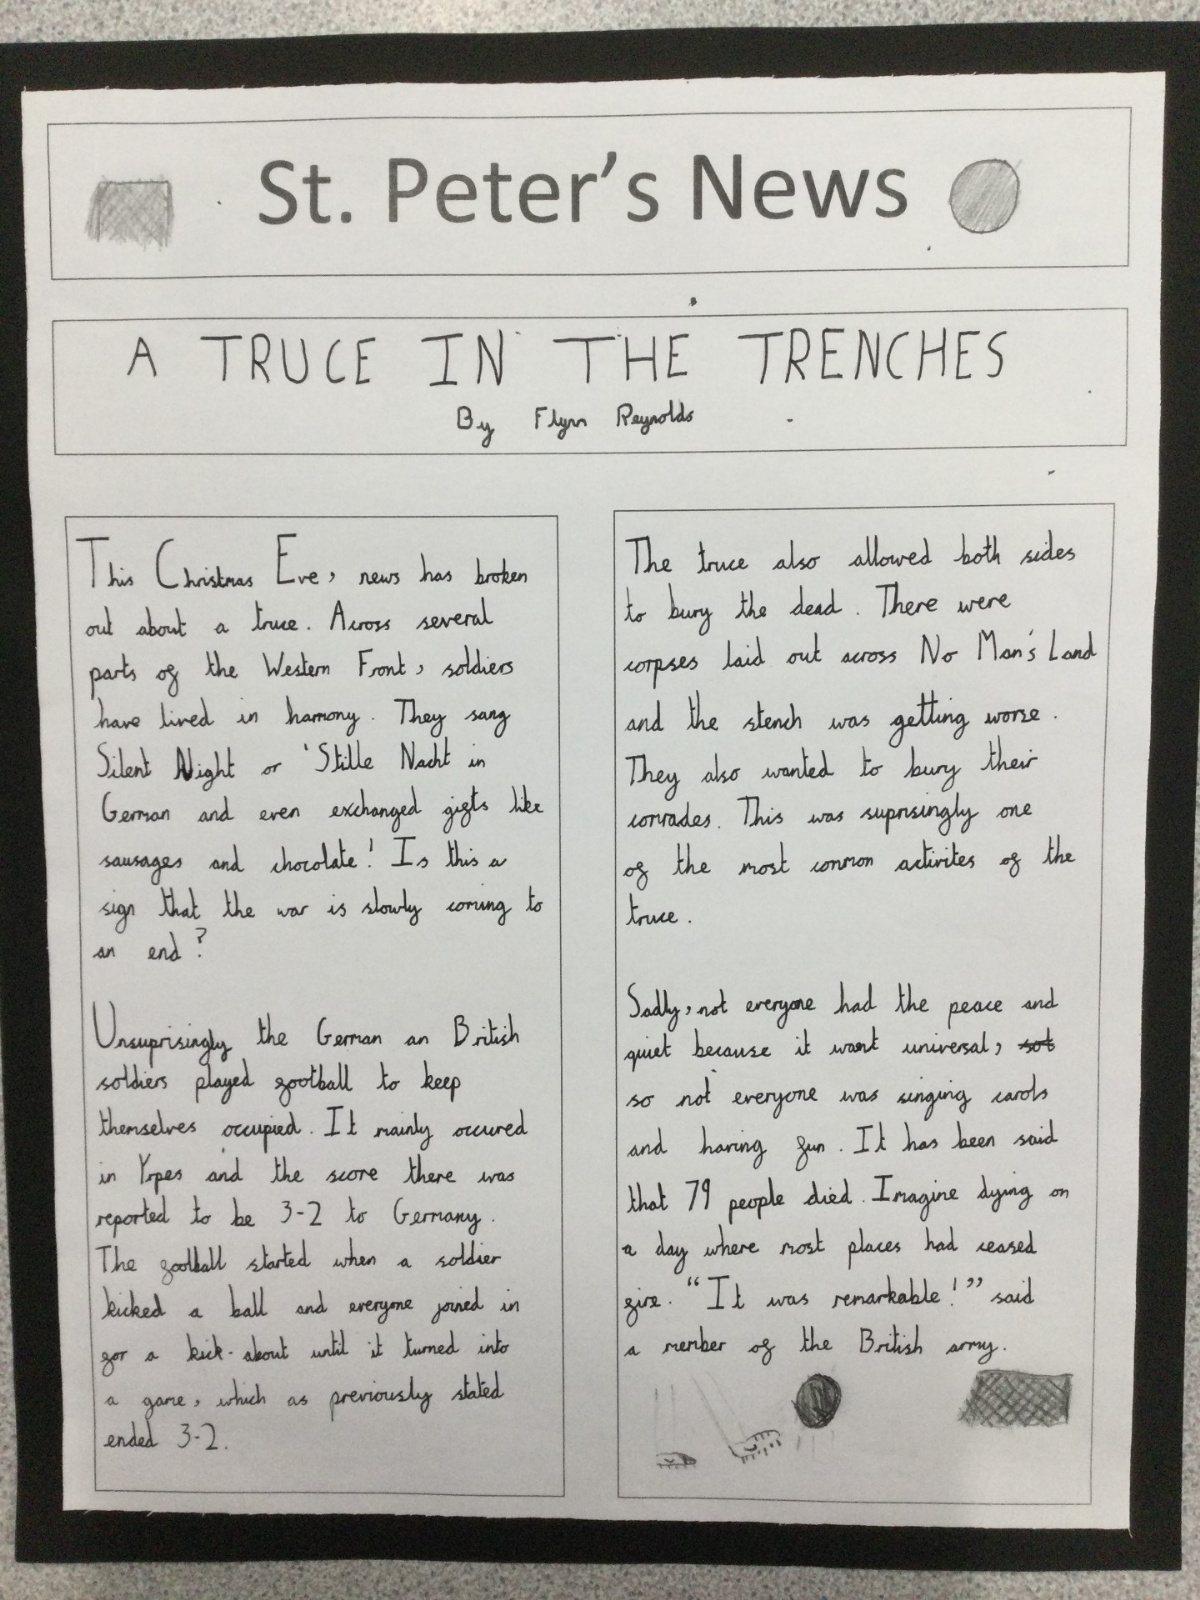 St. Peter's News
A TRUCE IN THE TRENCHES
By Flynn Reynolds
This Christmas Eve, news has broken
out about a truce. Across several
parts of the Western Front, soldiers
have lived in harmony. They sang
Silent Night or 'Stille Nacht in
German and even exchanged gifts like
sausages and chocolate! Is this a
sign that the war is slowly coming to
an end?
Unsuprisingly the German an British
soldiers played football to keep
themselves occupied. It mainly occured
in Yrpes and the score there was
reported to be 3-2 to Germany.
The football started when a soldier
kicked a ball and everyone joined in
for a kick-about until it turned into
a game, which as previously stated
ended 3-2.
The truce also allowed both sides
to bury the dead. There were
corpses laid out across No Man's Land
and the stench was getting worse.
They also wanted to bury their
comrades. This was suprisingly one
of the most common activites of the
truce.
Sadly, not everyone had the peace and
quiet because it wasnt universal, sot
so not everyone was singing carols
and having fun. It has been said
that 79 people died. Imagine dying on
a day where most places had ceased
fire. "It was remarkable!" said
a member of the British army.